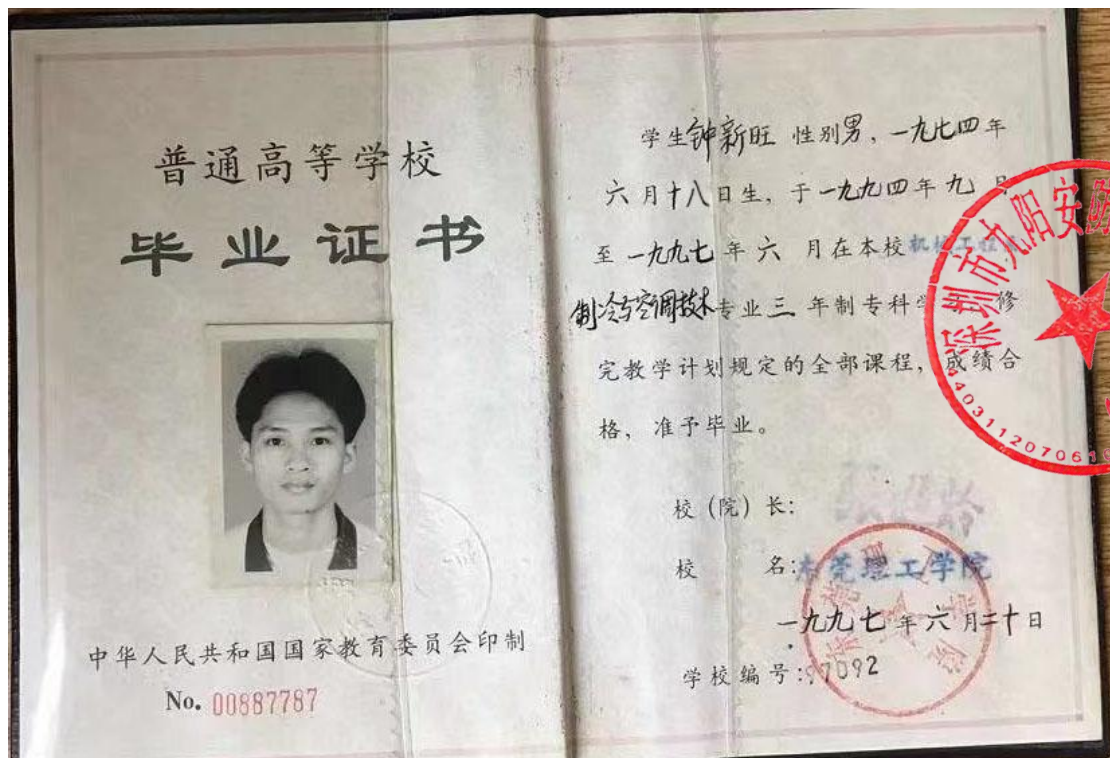 普通高等学校
毕业证书
中华人民共和国国家教育委员会印制
No. 00887787
学生钟新旺 性别男，一九七四年
六月十八日生，于一九九四年九月
至一九九七年六 月在本校机械工程系
制冷与空调技术专业三 年制专科学习，修
完教学计划规定的全部课程，成绩合
格，准予毕业。
校（院）长：
校 名：东莞理工学院
一九九七年六月二十日
学校编号：97092
深圳市九阳安
4403112070610